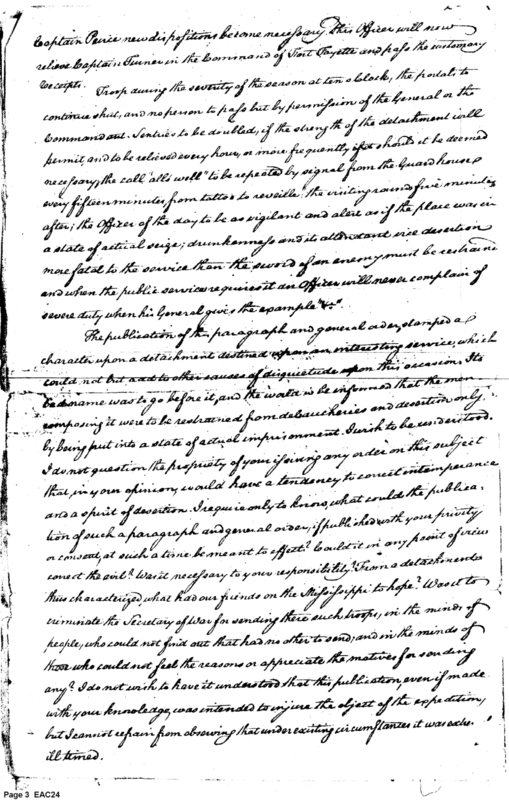 Captain Peirce new dispositions become necessary. This Officer will now
relieve Captain Turner in the Command of Fort Fayette and pass the customary
receipts.
Troop during the severity of the season at ten o Clock, the portals to
continue shut, and no person to pass but by permission of the General or the
Commandant. Sentries to be doubled, if the strength of the detachment will
permit, and to be relieved every hour, or more frequently if it should be deemed
necessary; the call "alls well" to be repeated by signal from the Guard house
every fifteen minutes from tattoo to reveille: the visiting round five minutes
after; the Officer of the day to be as vigilant and alert as if the place was in
a state of actual seige; drunkenness and its attendant vice desertion
more fatal to the service than the sword of an enemy must be restrained
and when the public service requires it an Officer will never complain of
severe duty when his General gives the example "&c."
The publication of this paragraph and general order, stamped a
character upon a detachment destined upon an interesting service, which
could not but add to other causes of disquietude upon this occasion. Its
bad name was to go before it, and the world to be informed that the men
composing it were to be restrained from debaucheries and desertion only
by being put into a state of actual imprisonment. I wish to be understood.
I do not question the propriety of your issuing any order on this subject
that, in your opinion, would have a tendency to correct intemperance
and a spirit of desertion. I require only to know, what could the publica-
tion of such a paragraph and general order, if published with your privity
or consent, at such a time be meant to effect? Could it in any point of view
correct the evil? Was it necessary to your responsibility? From a detachment
thus characterized, what had our friends on the Mississippi to hope? Was it to
criminate the Secretary of War for sending there such troops, in the minds of
people, who could not find out that had no other to send; and in the minds of
those who could not feel the reasons or appreciate the motives for sending
any? I do not wish to have it understood that this publication, even if made
with your knowledge, was intended to injure the object of the expedition,
but I cannot refrain from observing that under existing circumstances it was
ill timed.
Page 3 EAC24